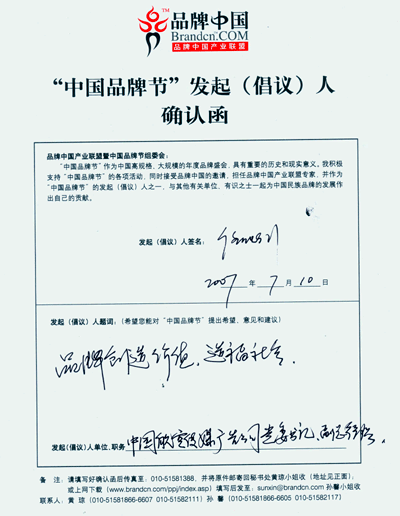 TM
品牌中国
Brandcn.COM
品牌中国产业联盟
“中国品牌节”发起（倡议）人
确认函
品牌中国产业联盟暨中国品牌节组委会：
“中国品牌节”作为中国高规格、大规模的年度品牌盛会，具有重要的历史和现实意义。我积极
支持“中国品牌节”的各项活动，同时接受品牌中国的邀请，担任品牌中国产业联盟专家，并作为
“中国品牌节”的发起（倡议）人之一，与其他有关单位、有识之士一起为中国民族品牌的发展作
出自己的贡献。
发起（倡议）人签名：
2007 年 7 月 10 日
发起（倡议）人题词：（希望您能对“中国品牌节”提出希望、意见和建议）
品牌创造价值，造福社会。
发起（倡议）人单位、职务 中国航空传媒广告公司党委书记、副总经理
备 注：请填写好确认函后传真至：010-51581388，并将原件邮寄回秘书处黄琼小姐收（地址见正面）；
或上网下载（www.brandcn.com/ppj/index.asp）填写后发送至：sunxin@brandcn.com 孙馨小姐收
联系人：黄 琼（010-51581866-6607 010-51582111）孙 馨（010-51581866-6605 010-51582117）